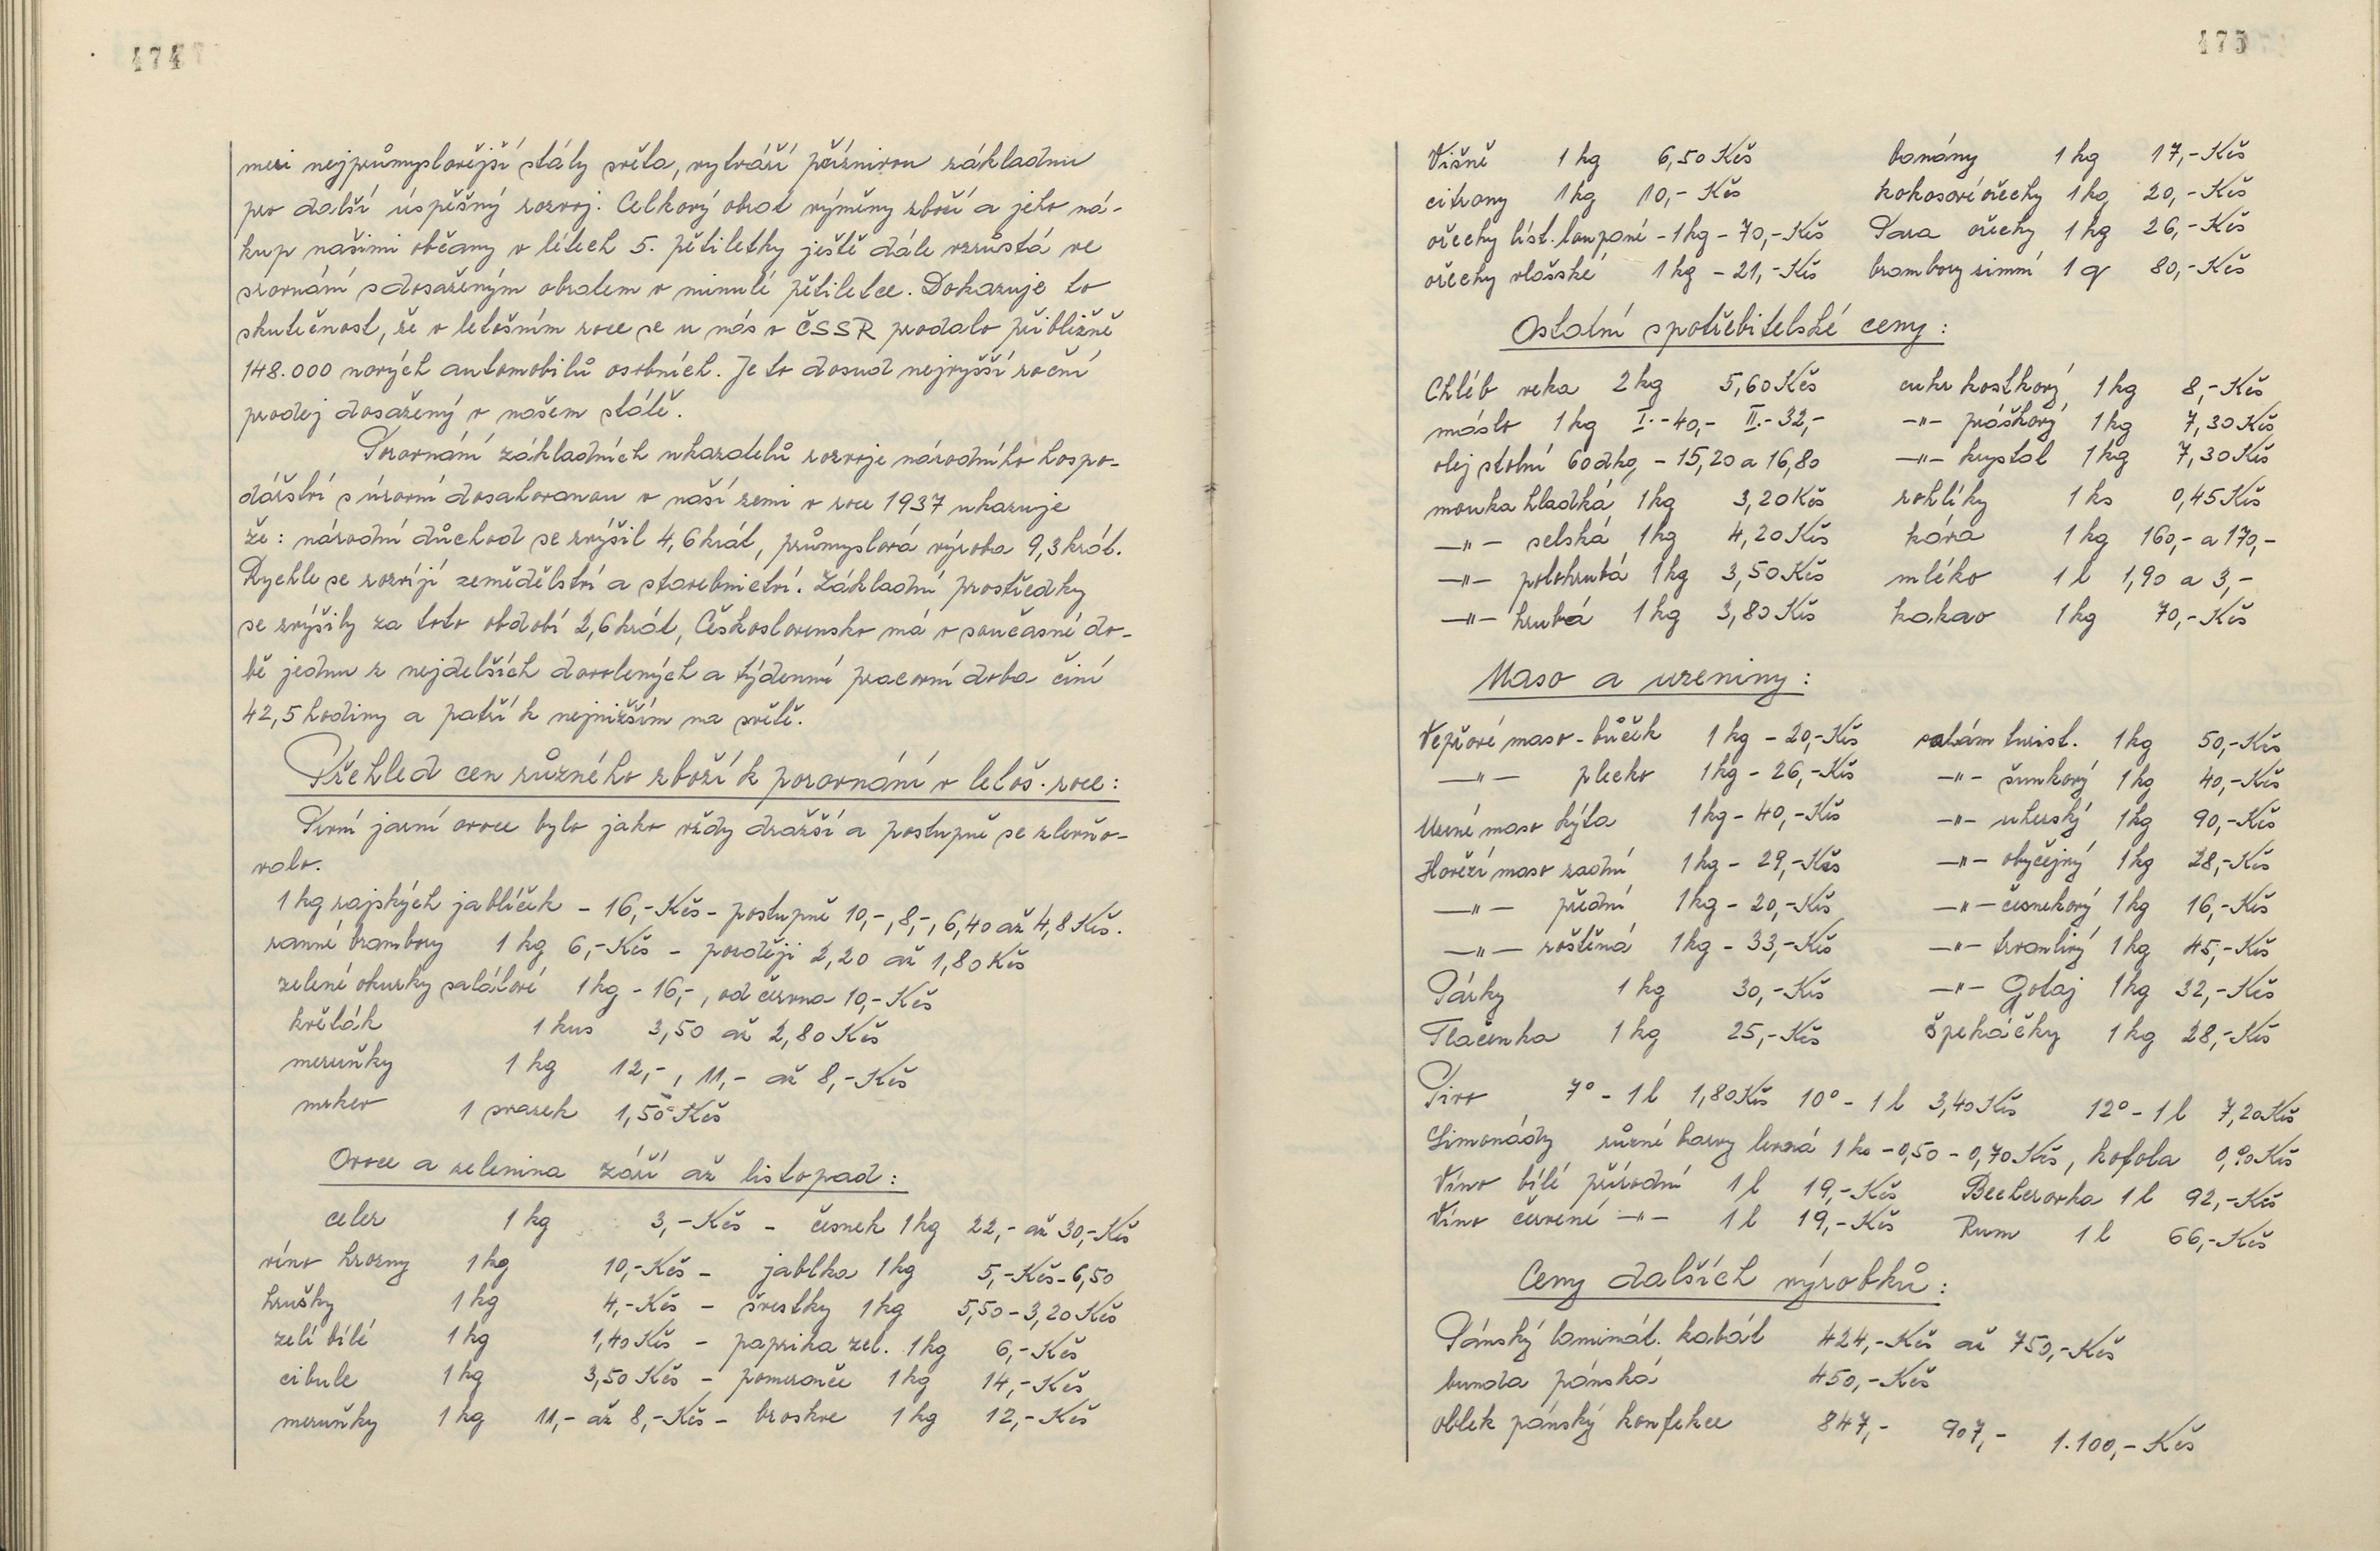 474
mezi nejprůmyslovější státy světa, vytváří příznivou základnu
pro další úspěšný rozvoj. Celkový obrat výměny zboží a jeho ná-
kup našimi občany v létech 5. pětiletky ještě dále vzrůstá ve
srovnání s dosaženým obratem v minulé pětiletce. Dokazuje to
skutečnost, že v letošním roce se u nás v ČSSR prodalo přibližně
148.000 nových automobilů osobních. Je to dosud nejvyšší roční
prodej dosažený v našem státě.
Srovnání základních ukazatelů rozvoje národního hospo-
dářství s úrovní dosahovanou v naší zemi v roce 1937 ukazuje
že: národní důchod se zvýšil 4,6 krát, průmyslová výroba 9,3 krát.
Rychle se rozvíjí zemědělství a stavebnictví. Základní prostředky
se zvýšily za toto období 2,6 krát, Československo má v současné do-
bě jednu z nejdelších dovolených a týdenní pracovní doba činí
42,5 hodiny a patří k nejnižším na světě.
Přehled cen různého zboží k porovnání v letoš. roce:
První jarní ovoce bylo jako vždy dražší a postupně se zlevňo-
valo.
1 kg rajských jablíček - 16,- Kčs - postupně 10,-, 8,-, 6,40 až 4,8 Kčs.
ranné brambory 1 kg 6,- Kčs - později 2,20 až 1,80 Kčs
zelené okurky salátové 1 kg - 16,-, od června 10,- Kčs
květák 1 kus 3,50 až 2,80 Kčs
meruňky 1 kg 12,-, 11,- až 8,- Kčs
mrkev 1 svazek 1,50 Kčs
Ovoce a zelenina září až listopad:
celer 1 kg 3,- Kčs - česnek 1 kg 22,- až 30,- Kčs
víno hrozny 1 kg 10,- Kčs - jablka 1 kg 5,- Kčs - 6,50
hrušky 1 kg 4,- Kčs - švestky 1 kg 5,50 - 3,20 Kčs
zelí bílé 1 kg 1,40 Kčs - paprika zel. 1 kg 6,- Kčs
cibule 1 kg 3,50 Kčs - pomeranče 1 kg 14,- Kčs
meruňky 1 kg 11,- až 8,- Kčs - broskve 1 kg 12,- Kčs
475
Višně 1 kg 6,50 Kčs banány 1 kg 17,- Kčs
citrony 1 kg 10,- Kčs kokosové ořechy 1 kg 20,- Kčs
ořechy líst. loupané - 1 kg - 70,- Kčs Para ořechy 1 kg 26,- Kčs
ořechy vlašské 1 kg - 21,- Kčs brambory zimní 1 q 80,- Kčs
Ostatní spotřebitelské ceny:
Chléb veka 2 kg 5,60 Kčs cukr kostkový 1 kg 8,- Kčs
máslo 1 kg I. - 40,- II. - 32,- -"- práškový 1 kg 7,30 Kčs
olej stolní 60 dkg - 15,20 a 16,80 -"- krystal 1 kg 7,30 Kčs
mouka hladká 1 kg 3,20 Kčs rohlíky 1 ks 0,45 Kčs
-"- selská 1 kg 4,20 Kčs káva 1 kg 160,- a 170,-
-"- polohrubá 1 kg 3,50 Kčs mléko 1 l 1,90 a 3,-
-"- hrubá 1 kg 3,80 Kčs kakao 1 kg 70,- Kčs
Maso a uzeniny:
Vepřové maso - bůček 1 kg - 20,- Kčs salám turist. 1 kg 50,- Kčs
-"- plecko 1 kg - 26,- Kčs -"- šunkový 1 kg 40,- Kčs
Uzené maso kýta 1 kg - 40,- Kčs -"- uherský 1 kg 90,- Kčs
Hovězí maso zadní 1 kg - 29,- Kčs -"- obyčejný 1 kg 28,- Kčs
-"- přední 1 kg - 20,- Kčs -"- česnekový 1 kg 16,- Kčs
-"- roštěná 1 kg - 33,- Kčs -"- trvanlivý 1 kg 45,- Kčs
Párky 1 kg 30,- Kčs -"- Gotaj 1 kg 32,- Kčs
Tlačenka 1 kg 25,- Kčs špekáčky 1 kg 28,- Kčs
Pivo 7° - 1 l 1,80 Kčs 10° - 1 l 3,40 Kčs 12° - 1 l 7,20 Kčs
Limonády různé barvy levná 1 ks - 0,50 - 0,70 Kčs, kofola 0,90 Kčs
Víno bílé přírodní 1 l 19,- Kčs Becherovka 1 l 92,- Kčs
Víno červené -"- 1 l 19,- Kčs Rum 1 l 66,- Kčs
Ceny dalších výrobků:
Pánský laminát. kabát 424,- Kčs až 750,- Kčs
bunda pánská 450,- Kčs
oblek pánský konfekce 847,- 907,- 1.100,- Kčs